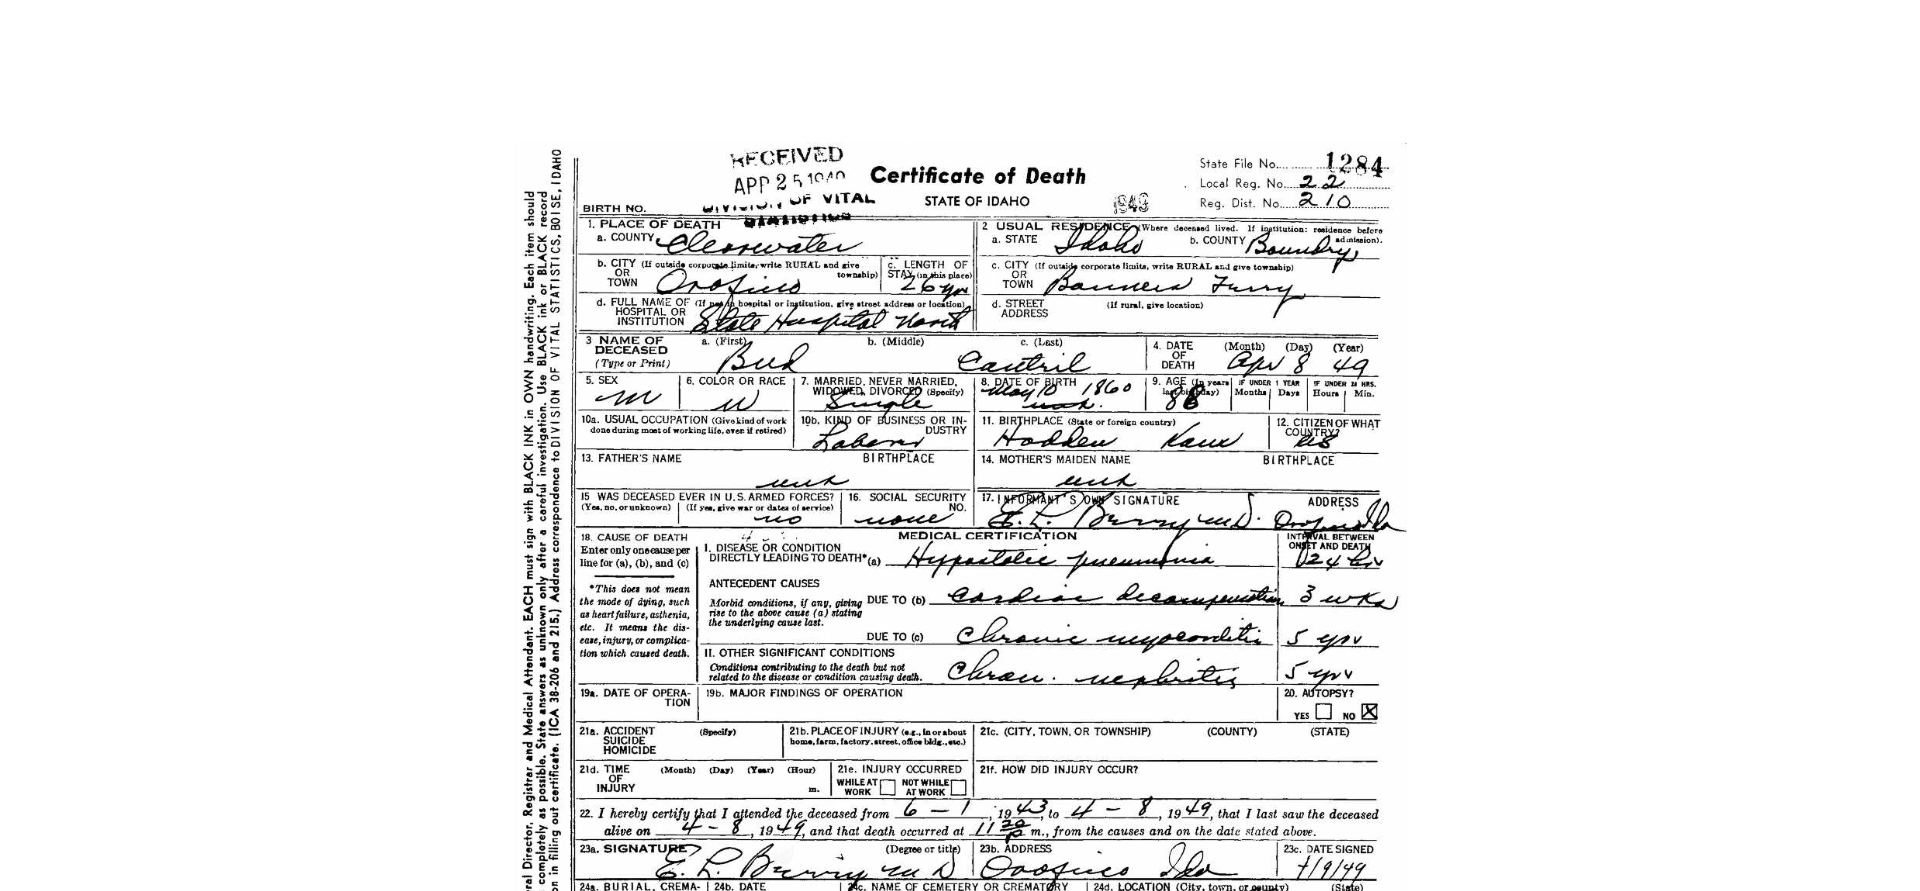 RECEIVED
APR 25 1949
DIVISION OF VITAL
STATISTICS
Certificate of Death
STATE OF IDAHO
1949
State File No. 1284
Local Reg. No. 22
Reg. Dist. No. 210
BIRTH NO.
1. PLACE OF DEATH
a. COUNTY Clearwater
2 USUAL RESIDENCE (Where deceased lived. If institution: residence before admission).
a. STATE Idaho b. COUNTY Boundry
b. CITY (If outside corporate limits, write RURAL and give township)
OR
TOWN Orofino
c. LENGTH OF
STAY (in this place)
26 yrs
c. CITY (If outside corporate limits, write RURAL and give township)
OR
TOWN Bonners Ferry
d. FULL NAME OF (If not in hospital or institution, give street address or location)
HOSPITAL OR
INSTITUTION State Hospital North
d. STREET (If rural, give location)
ADDRESS
3 NAME OF DECEASED
(Type or Print)
a. (First) b. (Middle) c. (Last)
Bud Cantril
4. DATE OF DEATH (Month) (Day) (Year)
Apr 8 49
5. SEX
M
6. COLOR OR RACE
W
7. MARRIED, NEVER MARRIED,
WIDOWED, DIVORCED (Specify)
Single
8. DATE OF BIRTH
May 10 1860
unk.
9. AGE (In years last birthday)
88
IF UNDER 1 YEAR
Months Days
IF UNDER 24 HRS.
Hours Min.
10a. USUAL OCCUPATION (Give kind of work
done during most of working life, even if retired)
10b. KIND OF BUSINESS OR IN-
DUSTRY
Labor
11. BIRTHPLACE (State or foreign country)
Hodden Kans
12. CITIZEN OF WHAT
COUNTRY?
US
13. FATHER'S NAME BIRTHPLACE
unk
14. MOTHER'S MAIDEN NAME BIRTHPLACE
unk
15 WAS DECEASED EVER IN U.S. ARMED FORCES?
(Yes, no, or unknown) (If yes, give war or dates of service)
no
16. SOCIAL SECURITY
NO.
none
17. INFORMANT'S OWN SIGNATURE ADDRESS
E. L. Berry M.D. Orofino Ida
18. CAUSE OF DEATH
Enter only one cause per
line for (a), (b), and (c)
*This does not mean
the mode of dying, such
as heart failure, asthenia,
etc. It means the dis-
ease, injury, or complica-
tion which caused death.
MEDICAL CERTIFICATION
INTERVAL BETWEEN
ONSET AND DEATH
I. DISEASE OR CONDITION
DIRECTLY LEADING TO DEATH*(a) Hypostatic pneumonia 24 hrs
ANTECEDENT CAUSES
Morbid conditions, if any, giving
rise to the above cause (a) stating
the underlying cause last.
DUE TO (b) Cardiac decompensation 3 wks
DUE TO (c) Chronic myocarditis 5 yrs
II. OTHER SIGNIFICANT CONDITIONS
Conditions contributing to the death but not
related to the disease or condition causing death.
Chron. nephritis 5 yrs
19a. DATE OF OPERA-
TION
19b. MAJOR FINDINGS OF OPERATION
20. AUTOPSY?
YES NO X
21a. ACCIDENT (Specify)
SUICIDE
HOMICIDE
21b. PLACE OF INJURY (e.g., in or about
home, farm, factory, street, office bldg., etc.)
21c. (CITY, TOWN, OR TOWNSHIP) (COUNTY) (STATE)
21d. TIME (Month) (Day) (Year) (Hour)
OF
INJURY m.
21e. INJURY OCCURRED
WHILE AT WORK NOT WHILE AT WORK
21f. HOW DID INJURY OCCUR?
22. I hereby certify that I attended the deceased from 6 - 1, 1943, to 4 - 8, 1949, that I last saw the deceased
alive on 4 - 8, 1949, and that death occurred at 11 20 p m., from the causes and on the date stated above.
23a. SIGNATURE (Degree or title)
E. L. Berry M D
23b. ADDRESS
Orofino Ida
23c. DATE SIGNED
4/9/49
24a. BURIAL, CREMA- 24b. DATE 24c. NAME OF CEMETERY OR CREMATORY 24d. LOCATION (City, town, or county) (State)
ral Director, Registrar and Medical Attendant. EACH must sign with BLACK INK in OWN handwriting. Each item should
completely as possible. State answers as unknown only after a careful investigation. Use BLACK ink or BLACK record
on in filling out certificate. (ICA 38-206 and 215.) Address correspondence to DIVISION OF VITAL STATISTICS, BOISE, IDAHO